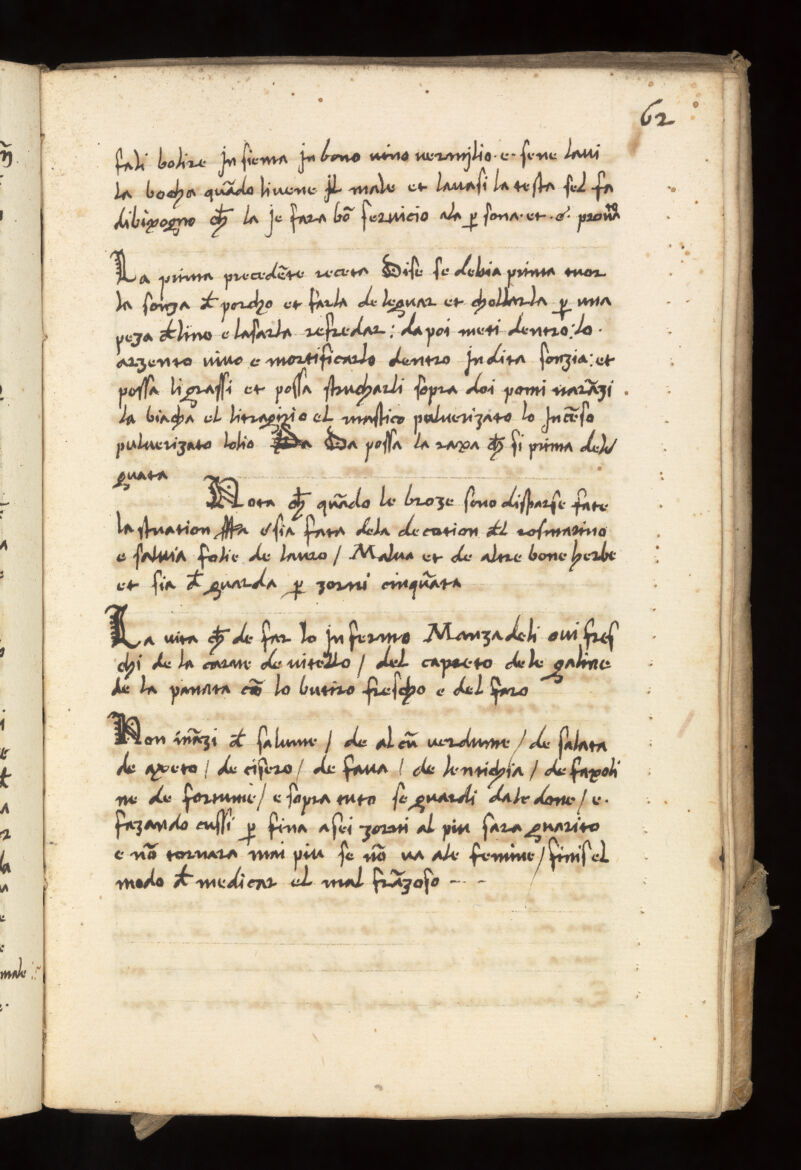 62
fali bolire Jnsiema Jn bono vino vermjlio · e · sene lavi
la bocha quãdo livene Jl male et lavasi la testa sel fa
dibixogno ch̃ la je fara bõ servicio ala ꝑsona · et · e.
La prima precedẽte receta Dise se debia prima tuor
la sonza đ porcho et farla deleguar et chollarla ꝑ una
peza đ lino e lasarla refredar : dapoi meti dentro : lo ·
arzento vivo e mortificarlo dentro Jndita sonzia : et
possa li grassi et possa strucharli sopra doi pomi narãzi
la biacha el litragirio el mastico pulverizato lo Jncẽso
pulverizato lolio Da possa la raxa ch̃ si prima dele/
guata
Nota ch̃ quãdo le broze sono disparse fate
la stuation e sia fata dela decotion đl rosmarino
e salvia folie de lauro / Malva et de altre bone herbe
et sia đ guarda ꝑ zorni cinquãta
La vita ch̃ de far lo Jnfermo Manza deli ovi fres
chi de la carne de vitello / del capreto dele galine
de la panata cõ lo butiro frescho e del faro
Non mãzi đ salume / de alcũ verdume / de salata
de axeto / de cisero / de fava / de lentichia / de faxoli
ne de fortume / e sopra tuto se guardi dale done / e ·
fazando cussi ꝑ fina a sei zorni al piu sara guarito
e nõ tornara mai piu se nõ va ale femine / finis el
modo đ medicar el mal frãzoso - -
male